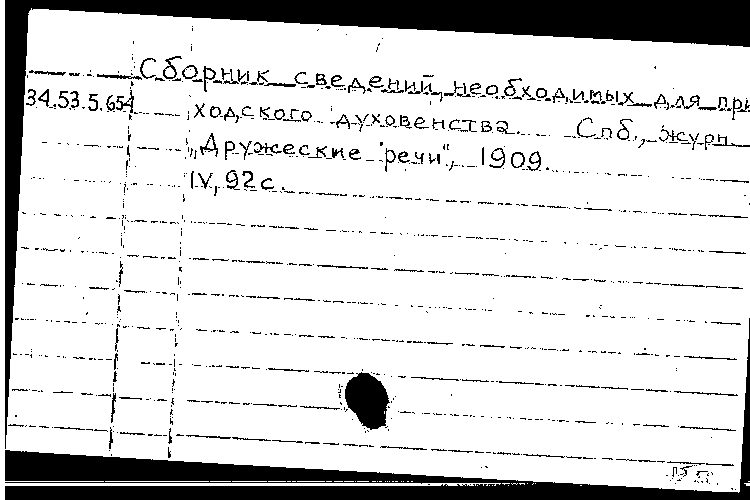 Сборник сведений, необходимых для при
34.53.5.654 ходского духовенства Спб., журн.
„Дружеские речи", 1909.
IV, 92 с.